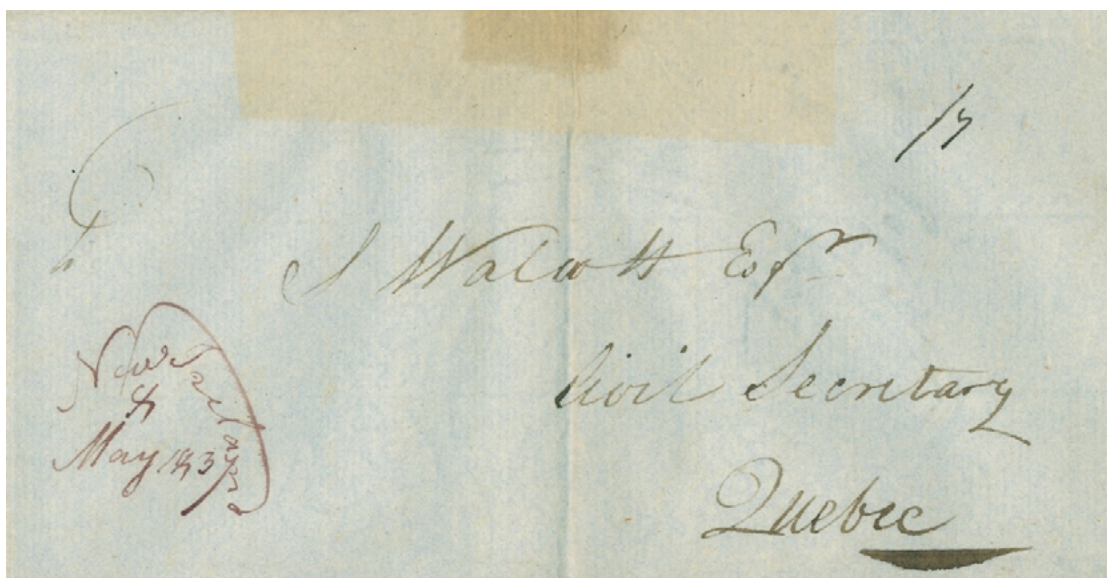 1/7
S Walcott Esqr
Civil Secretary
Quebec
New
May 1837